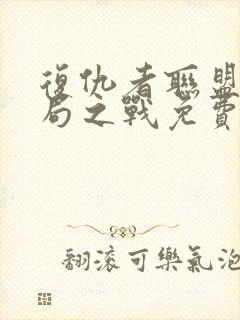 復仇者聯盟
局之戰免費
翻滾可樂氣泡